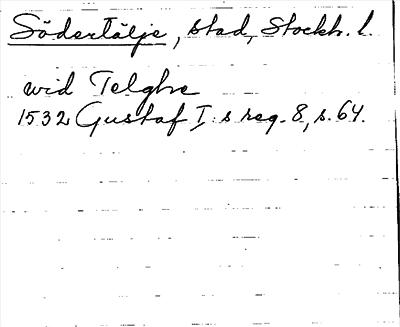 Södertälje, stad, Stockh. l.
wid Telghe
1532 Gustaf I:s reg. 8, s. 64.